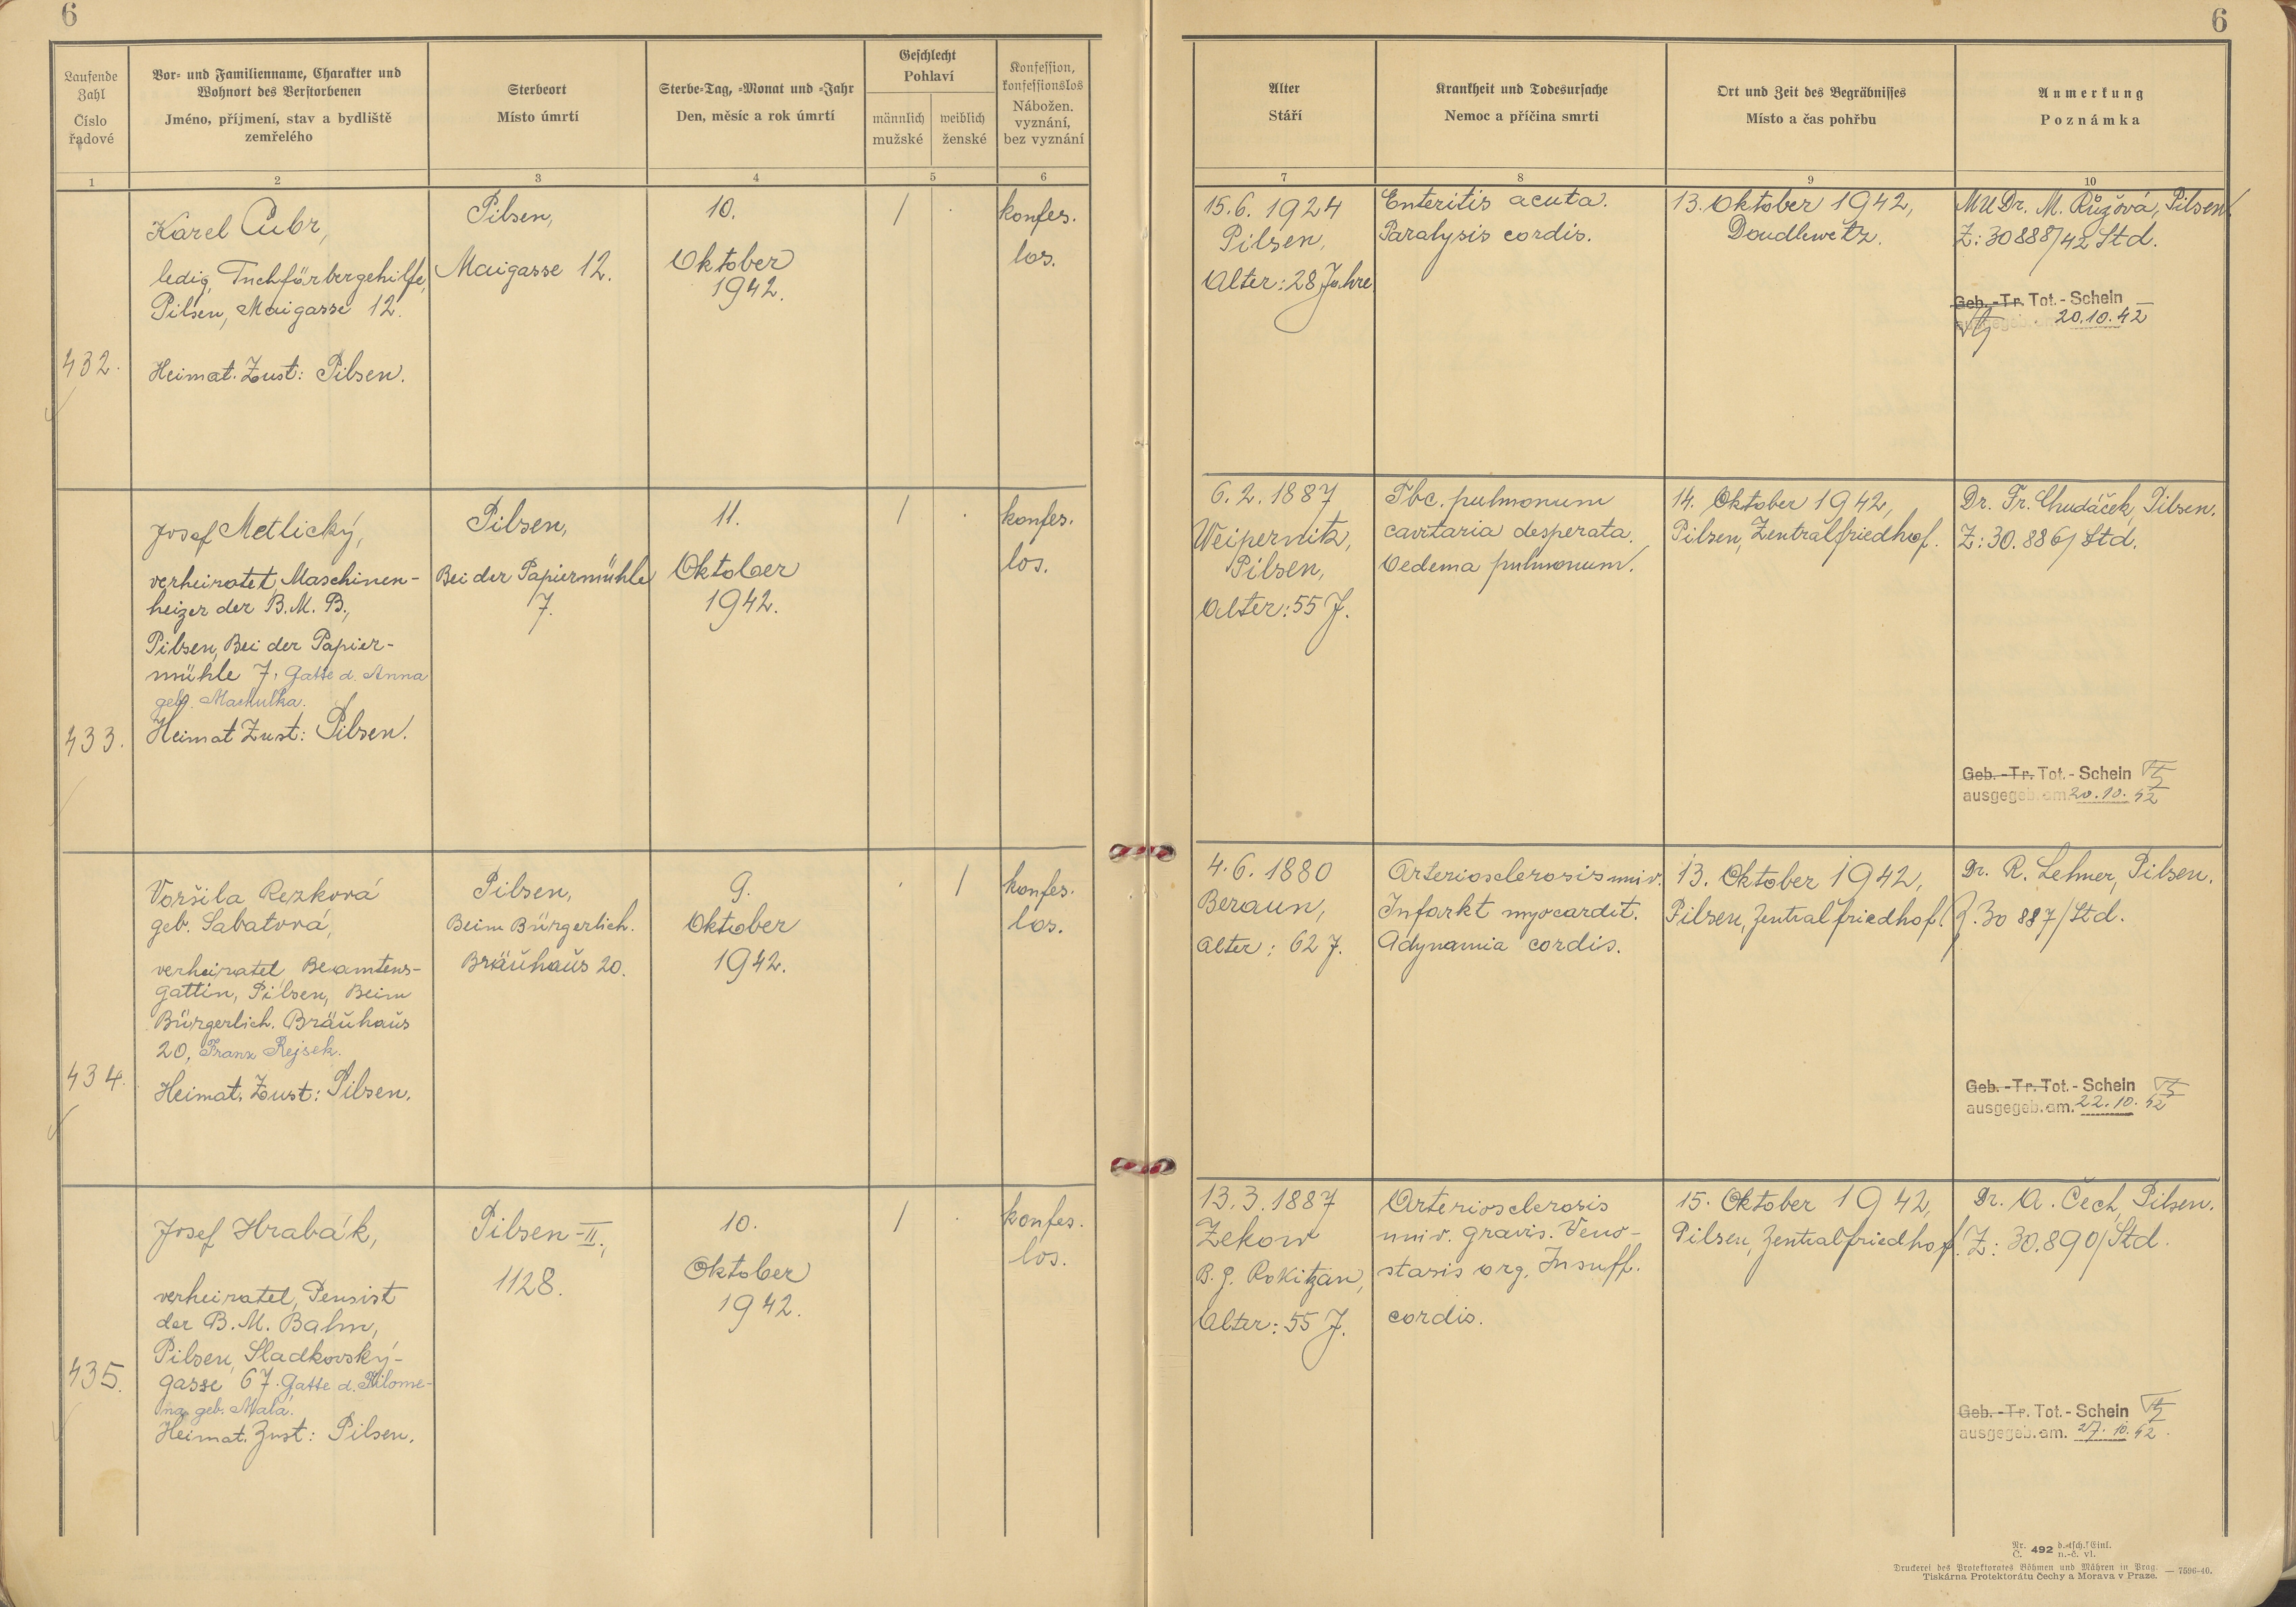 6
6
Laufende Zahl
Číslo řadové
Vor- und Familienname, Charakter und
Wohnort des Verstorbenen
Jméno, příjmení, stav a bydliště
zemřelého
Sterbeort
Místo úmrtí
Sterbe-Tag, -Monat und -Jahr
Den, měsíc a rok úmrtí
Geschlecht
Pohlaví
männlich
mužské
weiblich
ženské
Konfession,
konfessionslos
Nábožen.
vyznání,
bez vyznání
Alter
Stáří
Krankheit und Todesursache
Nemoc a příčina smrti
Ort und Zeit des Begräbnisses
Místo a čas pohřbu
Anmerkung
Poznámka
1 2 3 4 5 6 7 8 9 10
432.
Karel Cubr,
ledig, Tuchfärbergehilfe,
Pilsen, Maigasse 12.
Heimat. Zust: Pilsen.
Pilsen,
Maigasse 12.
10.
Oktober
1942.
/
konfes.
los.
15.6. 1924
Pilsen,
Alter: 28 Jahre
Enteritis acuta.
Paralysis cordis.
13. Oktober 1942,
Doudlewetz.
MUDr. M. Růžová, Pilsen
Z: 30888/42 Std.
Geb.-Tr. Tot.-Schein
20.10.42
433.
Josef Metlický,
verheiratet, Maschinen-
heizer der B.M.B.,
Pilsen, Bei der Papier-
mühle 7, Gatte d. Anna
geb. Machulka.
Heimat Zust: Pilsen.
Pilsen,
Bei der Papiermühle
7.
11.
Oktober
1942.
/
konfes.
los.
6.2.1887
Weipernitz,
Pilsen,
Alter: 55 J.
Tbc. pulmonum
cavitaria desperata.
Oedema pulmonum.
14. Oktober 1942,
Pilsen, Zentralfriedhof.
Dr. Fr. Chudáček, Pilsen.
Z: 30.886/Std.
Geb.-Tr. Tot.-Schein
ausgegeb. am 20.10.42
434.
Voršila Rezková
geb. Sabatová,
verheiratet, Beamtens-
gattin, Pilsen, Beim
Bürgerlich. Bräuhaus
20, Franz Rejsek.
Heimat. Zust: Pilsen.
Pilsen,
Beim Bürgerlich.
Bräuhaus 20.
9.
Oktober
1942.
/
konfes.
los.
4.6.1880
Beraun,
Alter: 62 J.
Arteriosclerosis univ.
Infarkt myocardit.
Adynamia cordis.
13. Oktober 1942,
Pilsen, Zentralfriedhof.
Dr. R. Lehner, Pilsen.
Z. 30 887/Std.
Geb.-Tr. Tot.-Schein
ausgegeb. am. 22.10.42
435.
Josef Hrabák,
verheiratet, Pensist
der B.M. Bahn,
Pilsen, Sladkovský-
gasse 67. Gatte d. Filome-
na geb. Malá.
Heimat. Zust: Pilsen.
Pilsen-II.,
1128.
10.
Oktober
1942.
/
konfes.
los.
13.3.1887
Zekow
B. G. Rokitzan,
Alter: 55 J.
Arteriosclerosis
univ. gravis. Veno-
stasis org. Insuff.
cordis.
15. Oktober 1942,
Pilsen, Zentralfriedhof.
Dr. A. Čech, Pilsen.
Z: 30.890/Std.
Geb.-Tr. Tot.-Schein
ausgegeb. am. 27.10.42.
Nr.
Č. 492 d.-tsch. Einl.
n.-č. vl.
Druckerei des Protektorates Böhmen und Mähren in Prag. — 7596-40.
Tiskárna Protektorátu Čechy a Morava v Praze.